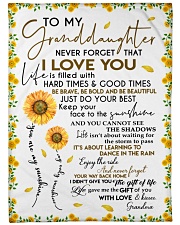 TO MY
Granddaughter
NEVER FORGET THAT
I LOVE YOU
Life is filled with
HARD TIMES & GOOD TIMES
BE BRAVE, BE BOLD AND BE BEAUTIFUL
JUST DO YOUR BEST
Keep your
face to the sunshine
AND YOU CANNOT SEE
THE SHADOWS
LIFE isn't about waiting
for the storm to pass
IT'S ABOUT LEARNING TO
DANCE IN THE RAIN
Enjoy the ride
And never forget
YOUR WAY BACK HOME
I DIDN'T GIVE YOU The gift of life
Life gave me the GIFT OF you
WITH LOVE & kisses
Grandma
You are my sunshine